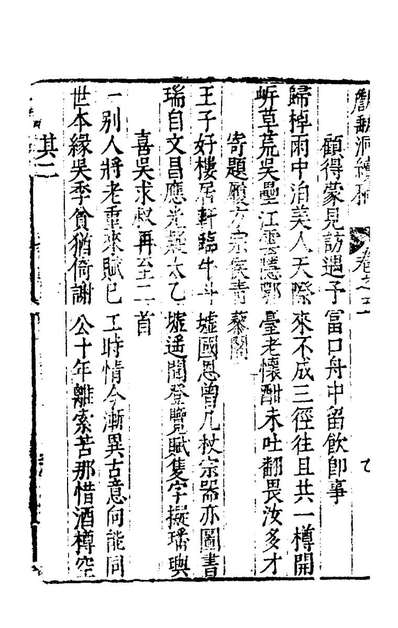 甔甀洞續稿 卷之三
顧得蒙見訪遇予富口舟中留飲即事
歸棹雨中泊美人天際來不成三徑往且共一樽開
草荒吳壘江雲隱郢臺老懷酣未吐翻畏汝多才
寄題宗侯青藜閣
王子好樓居軒臨牛斗墟國恩曾几杖宗器亦圖書
瑞自文昌應太乙墟遥聞登覽賦隻字擬璠璵
喜吳求叔再至二首
一別人將老重來賦已工時情今漸異古意向能同
世本緣吳季貧猶倚謝公十年離索苦那惜酒樽空
其二